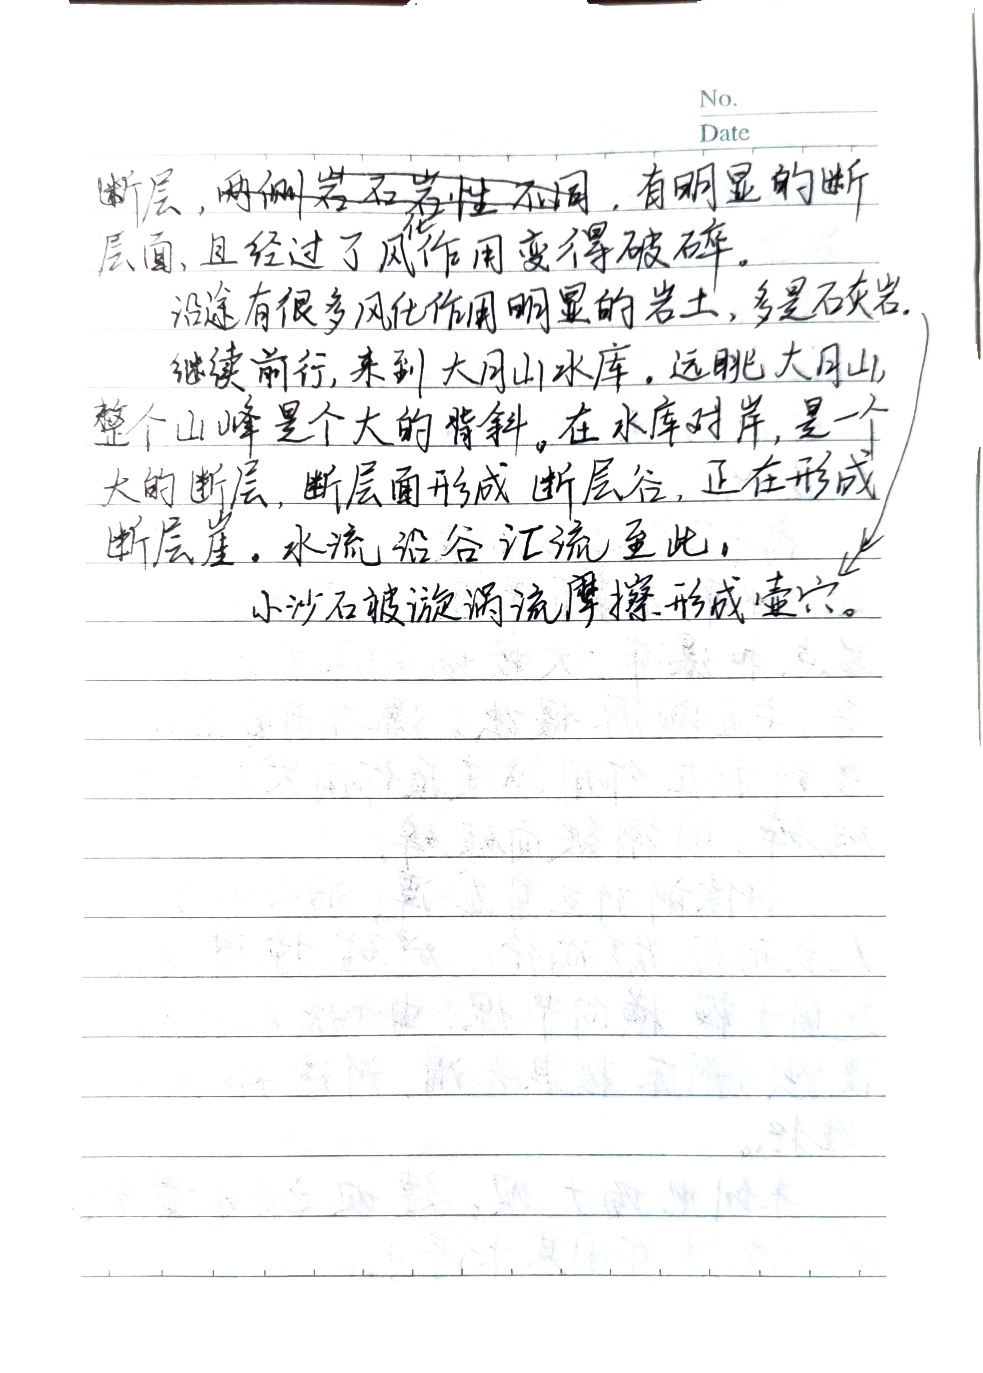 No.
Date
断层，两侧岩石岩性不同，有明显的断
层面，且经过了风化作用变得破碎。
沿途有很多风化作用明显的岩土，多是石灰岩.
继续前行，来到大月山水库。远眺大月山，
整个山峰是个大的背斜。在水库对岸，是一个
大的断层，断层面形成断层谷，正在形成
断层崖。水流沿谷汇流至此，
小沙石被漩涡流摩擦形成壶穴。